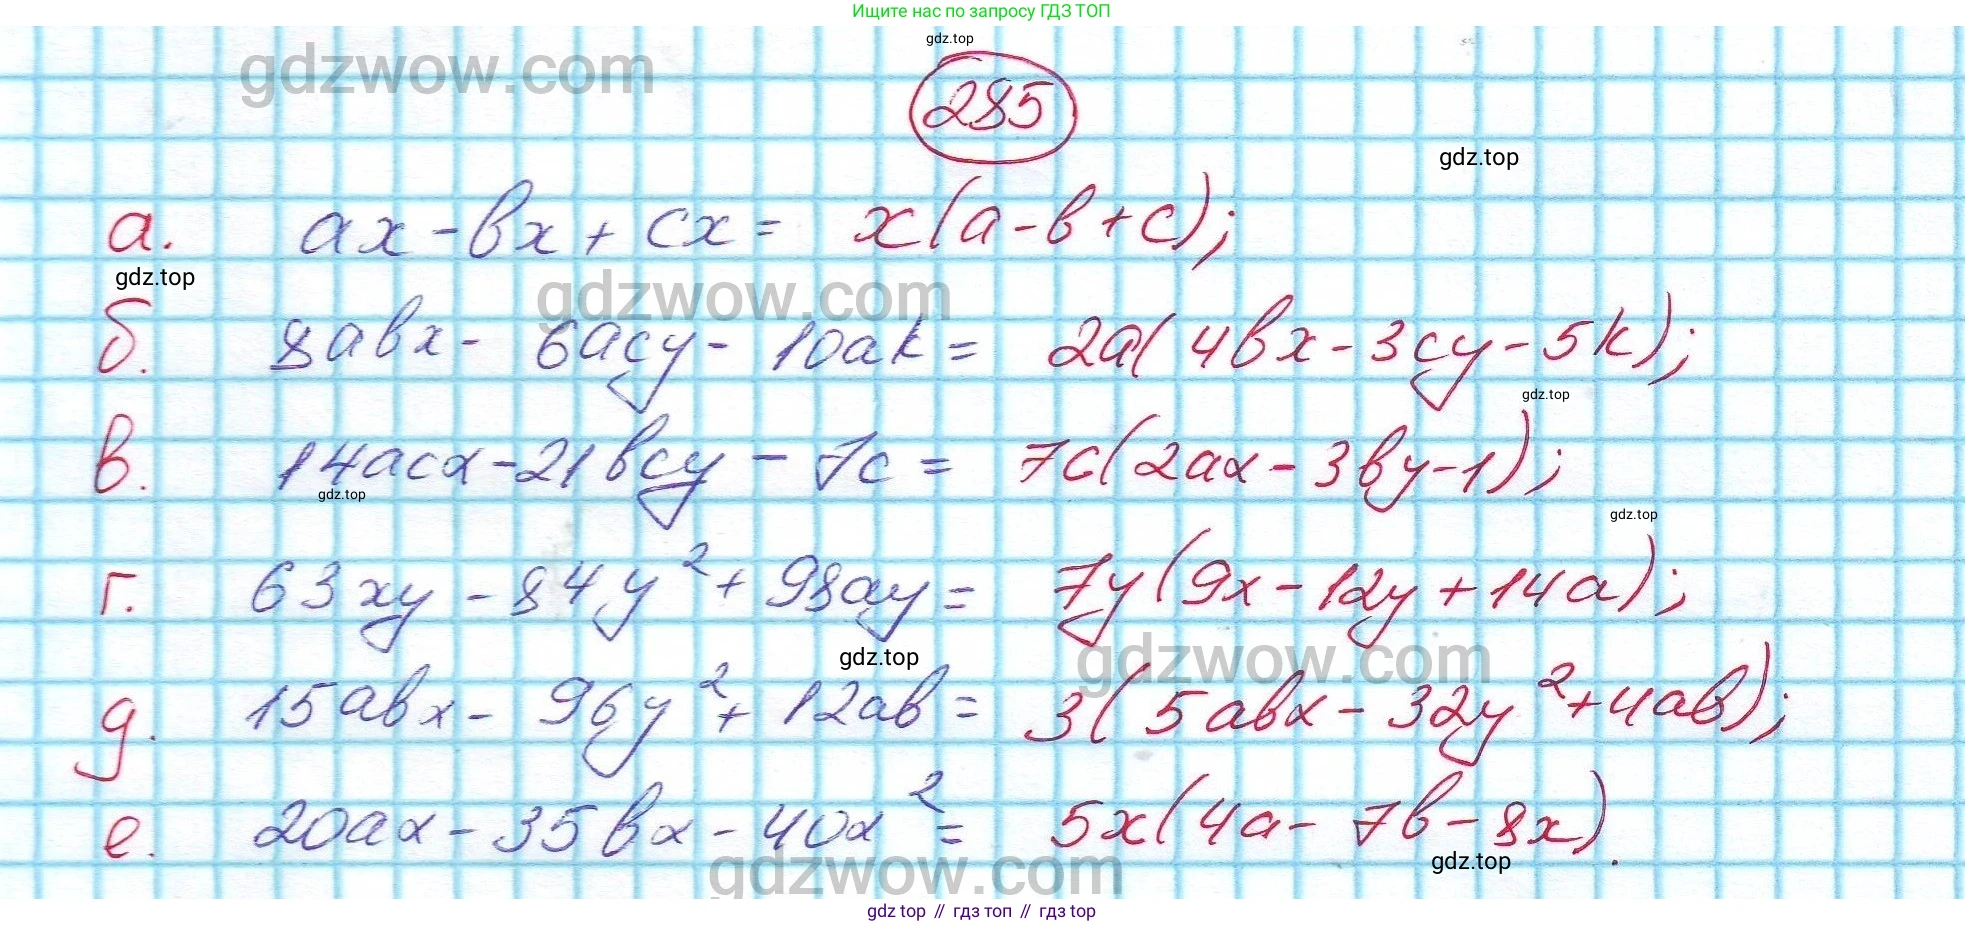 Ищите нас по запросу ГДЗ ТОП
gdz.top
gdzwow.com
285
gdz.top
а. ax - bx + cx = x(a - b + c);
gdz.top
gdzwow.com
б. 8abx - 6acy - 10ak = 2a(4bx - 3cy - 5k);
gdz.top
в. 14acx - 21bcy - 7c = 7c(2ax - 3by - 1);
gdz.top
gdz.top
г. 63xy - 84y² + 98ay = 7y(9x - 12y + 14a);
gdz.top
gdzwow.com
д. 15abx - 96y² + 12ab = 3(5abx - 32y² + 4ab);
е. 20ax - 35bx - 40x² = 5x(4a - 7b - 8x).
gdz.top
gdzwow.com
gdz top // гдз топ // гдз top